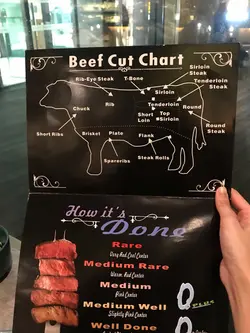 Beef Cut Chart
Rib-Eye Steak
T-Bone
Sirloin
Steak
Sirloin
Tenderloin
Steak
Rib
Tenderloin
Chuck
Short
Loin
Top
Sirloin
Round
Steak
Round
Short Ribs
Brisket
Plate
Flank
Spareribs
Steak Rolls
How it's
Done
Rare
Very Red Cool Center
Medium Rare
Warm Red Center
Medium
Pink Center
Medium Well
Slightly Pink Center
Well Done